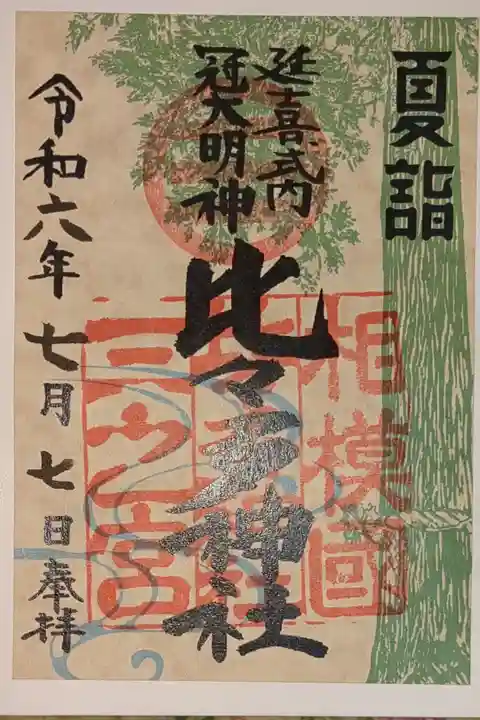 夏詣
延喜式内
冠大明神
比々多神社
相模國
三之宮
令和六年七月七日奉拝